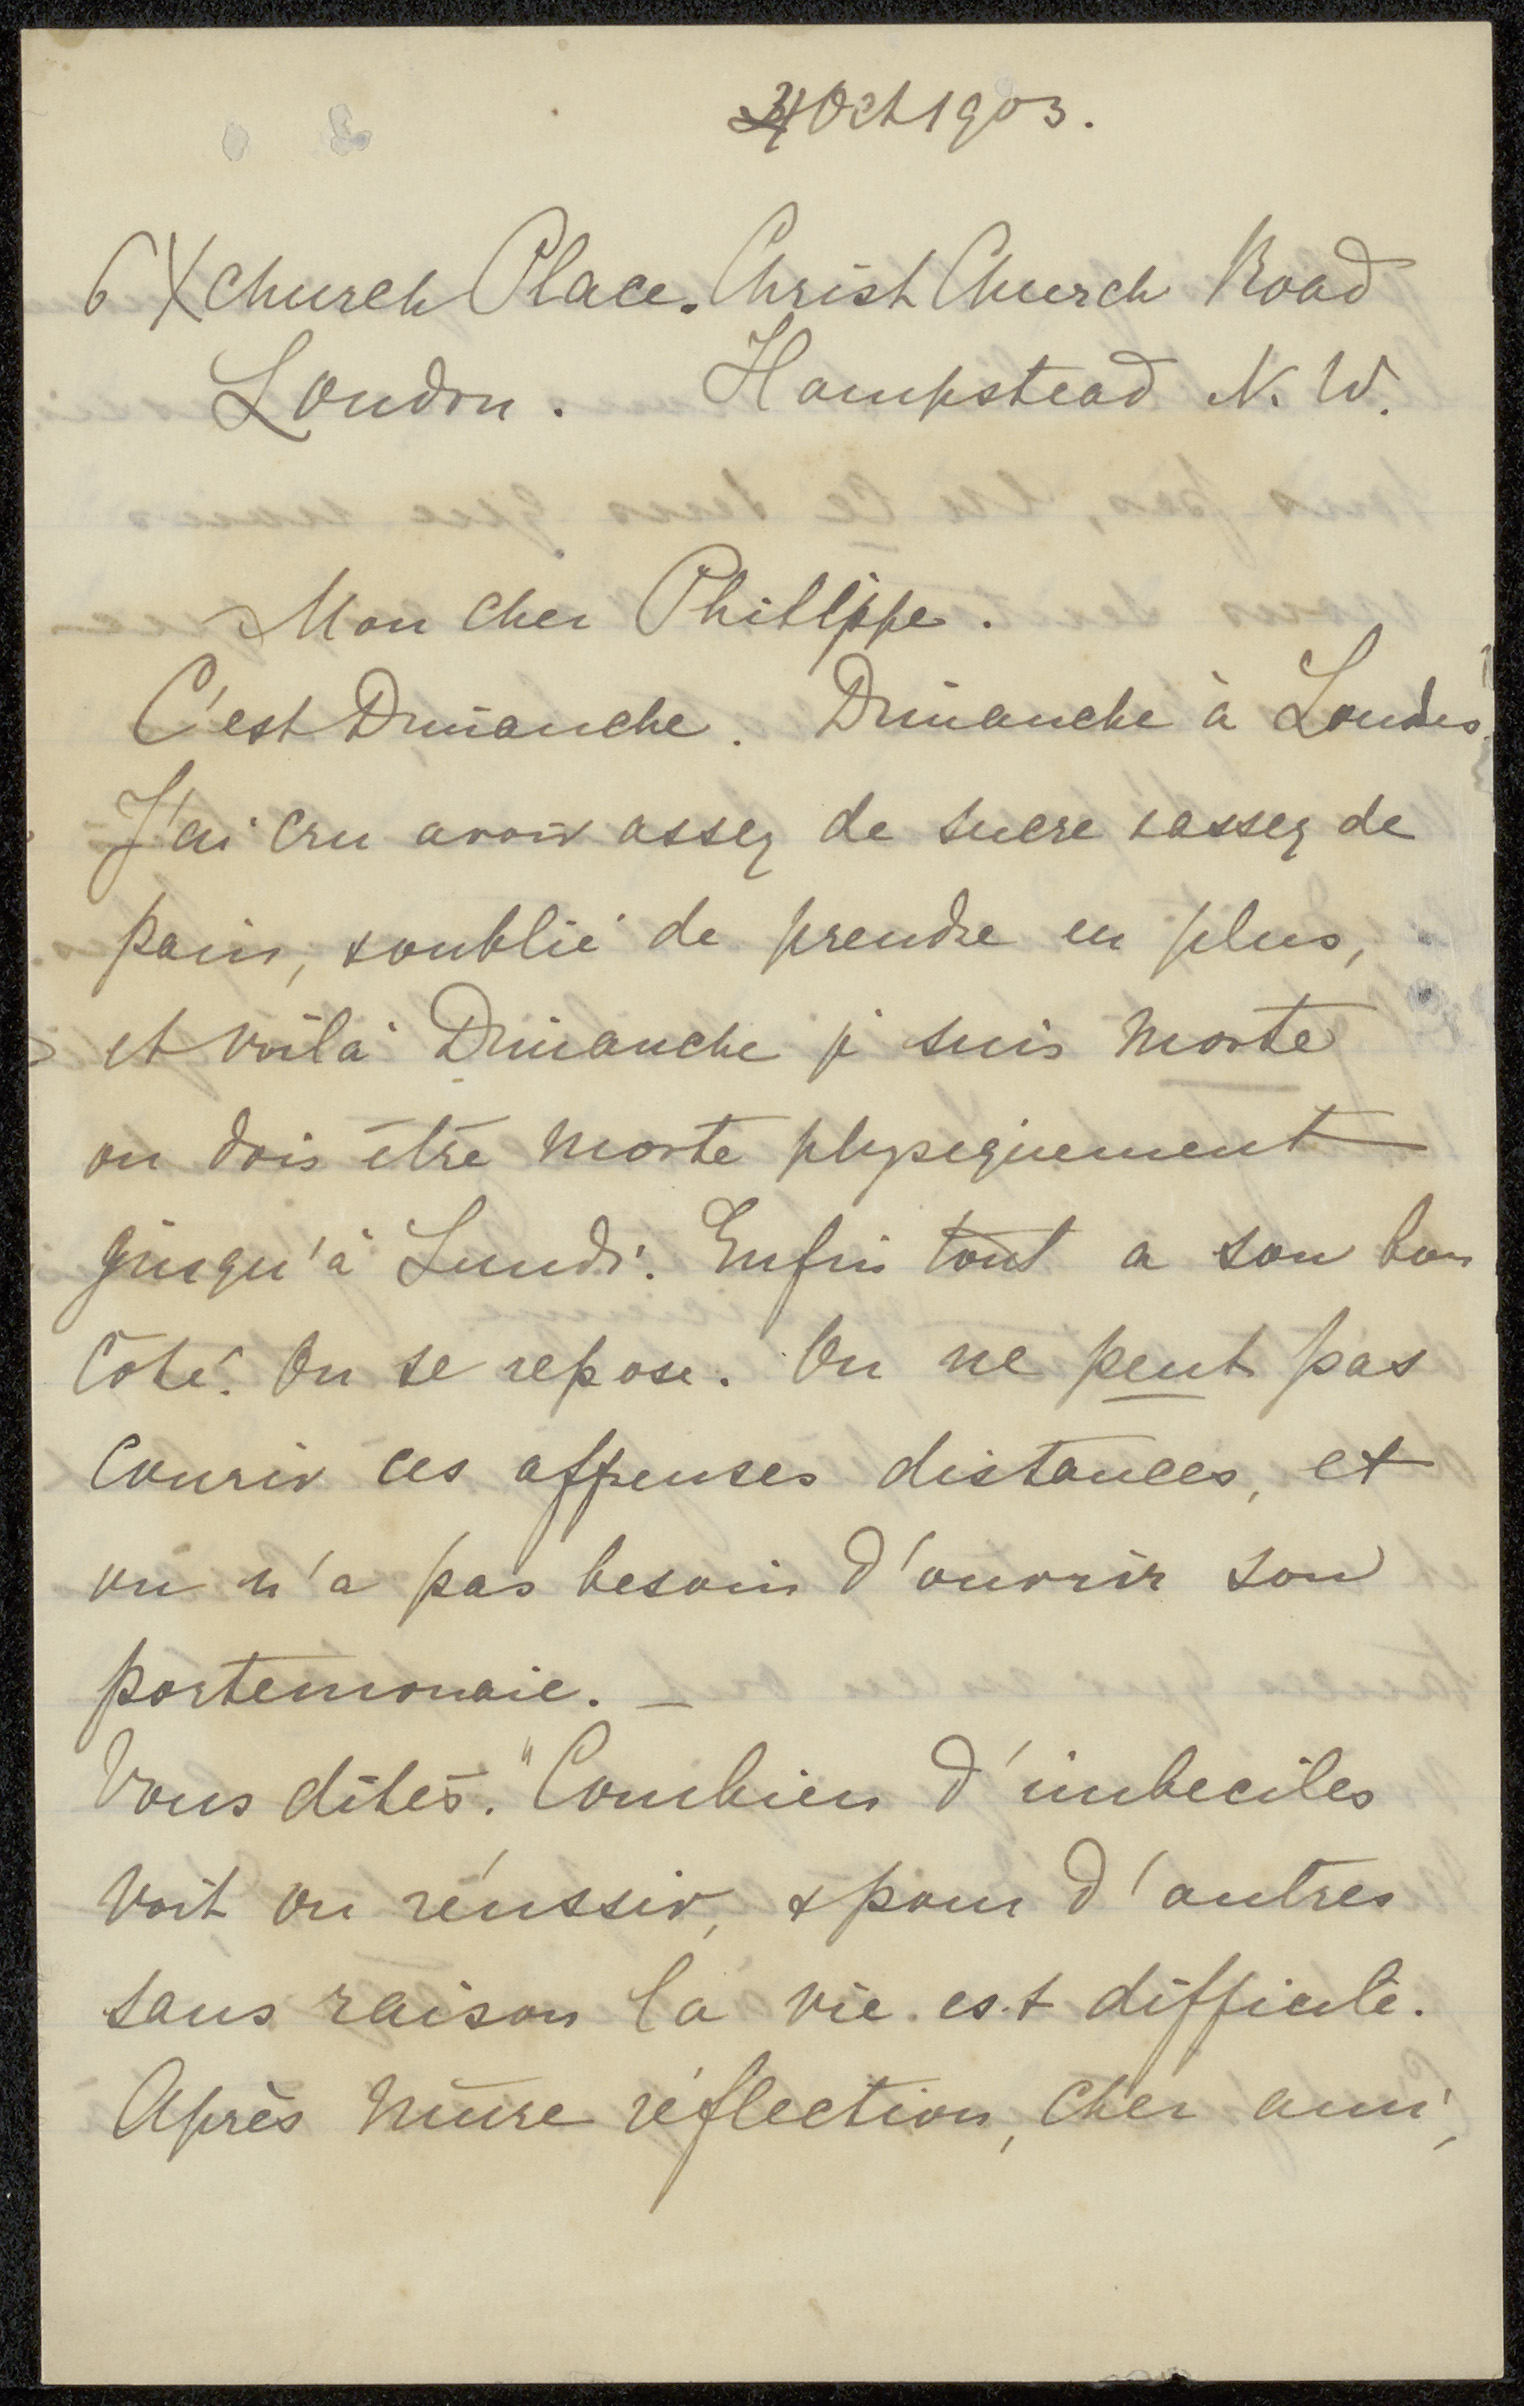 4 Oct 1903.
6 Xchurch Place. Christ Church Road
London. Hampstead N. W.
Mon cher Philippe.
C'est Dimanche. Dimanche à Londres.
J'ai cru avoir assez de sucre & assez de
pain, & oublié de prendre en plus,
et voilà Dimanche je suis morte
on dois être morte physiquement
jusqu'à Lundi. Enfin tout a son bon
côté. On se repose. On ne peut pas
courir ces affreuses distances, et
on n'a pas besoin d'ouvrir son
portemonaie. —
Vous dites. "Combien d'imbeciles
voit on réussir, & pour d'autres
sans raison la vie est difficile.
Après mûre réflection, cher ami,